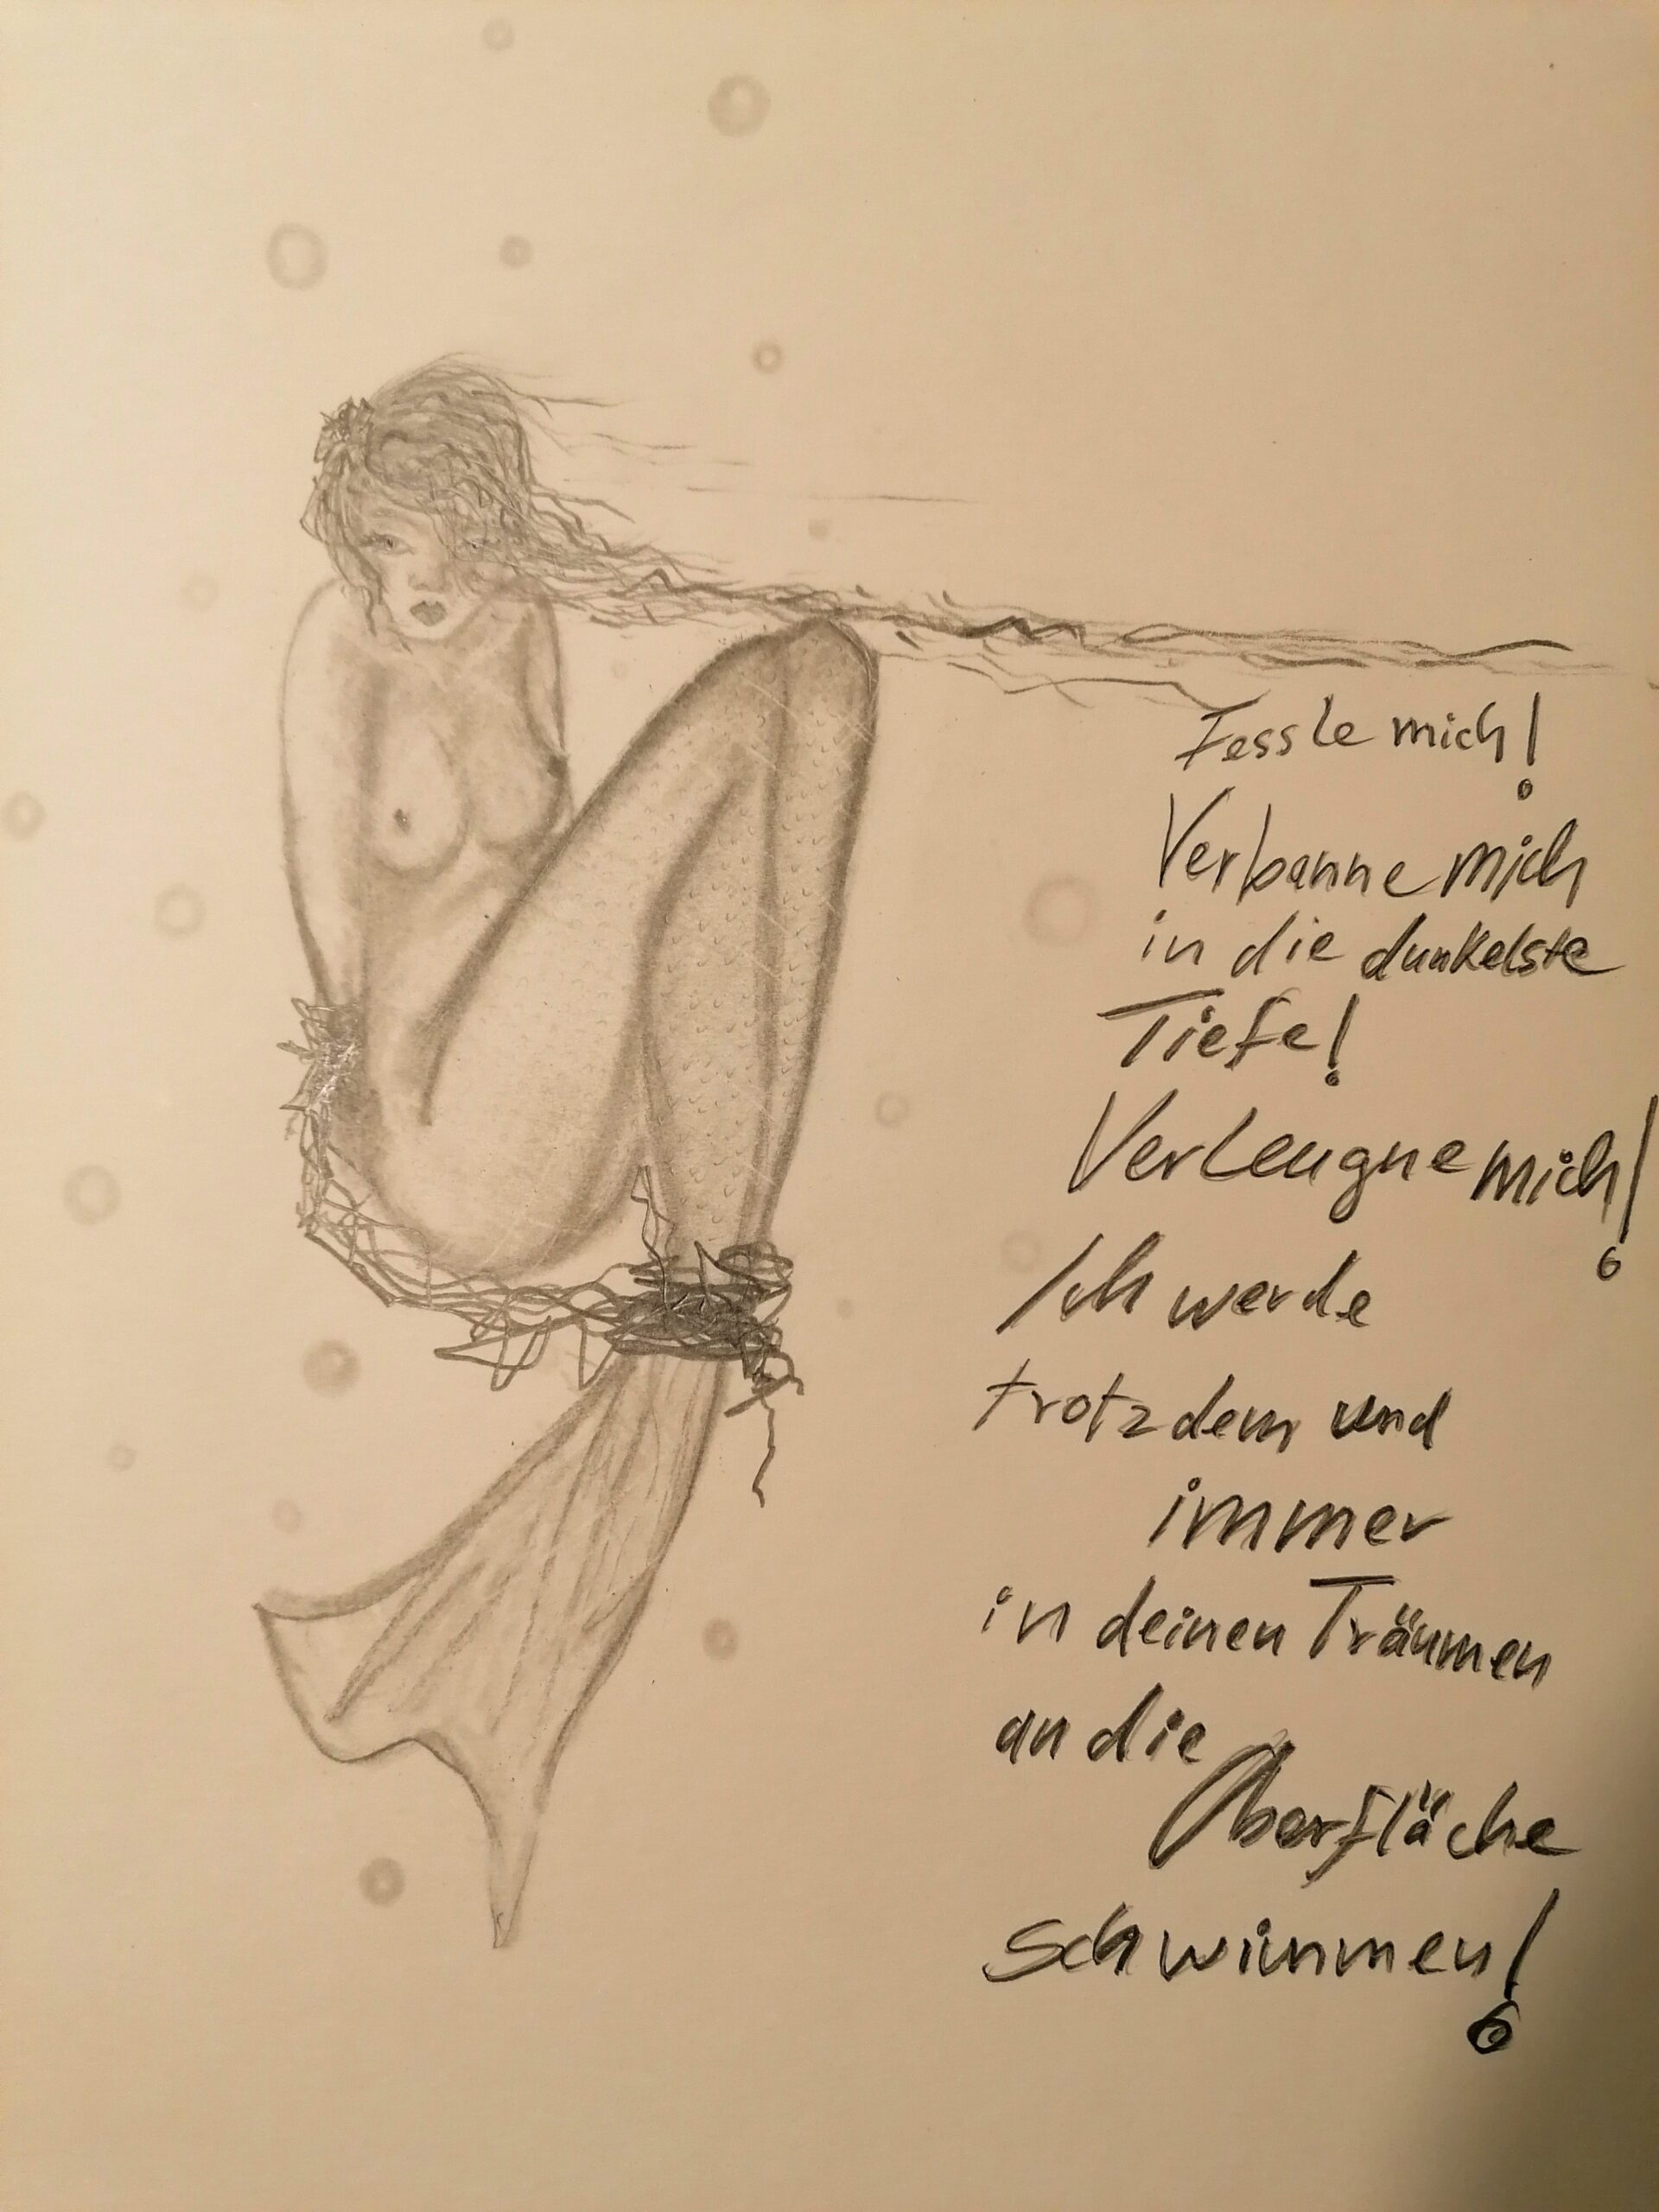 Fessle mich!
Verbanne mich
in die dunkelste
Tiefe!
Verleugne mich!
Ich werde
trotzdem und
immer
in deinen Träumen
an die
Oberfläche
schwimmen!